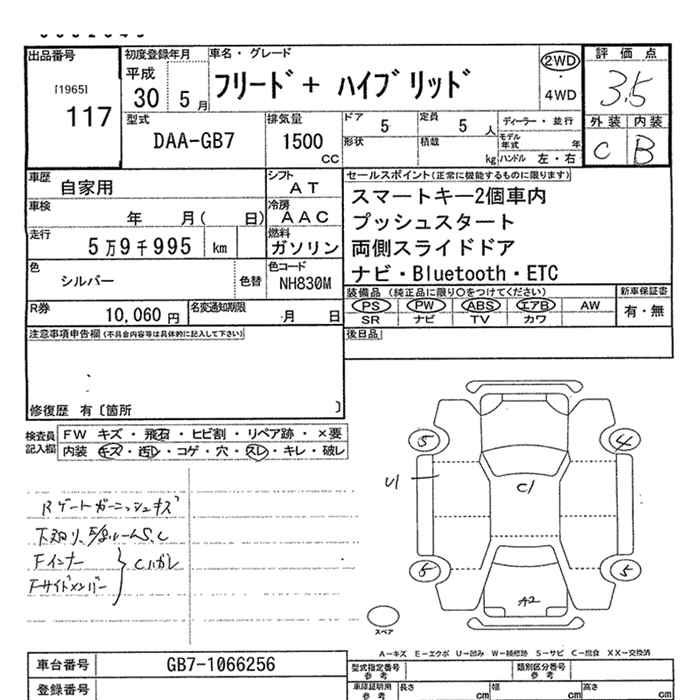 出品番号
[1965]
117
初度登録年月
平成
30 5 月
車名・グレード
フリード + ハイブリッド
2WD
・
4WD
評価点
3.5
外装 内装
C B
型式
DAA-GB7
排気量
1500
CC
ドア
5
定員
5 人
形状
積載
kg
ディーラー・並行
モデル年式 年
ハンドル 左・右
車歴
自家用
シフト
AT
車検
年 月( 日)
冷房
AAC
走行
5万9千995 km
燃料
ガソリン
色
シルバー
色替
色コード
NH830M
R券
10,060 円
名変通知期限
月 日
セールスポイント(正常に機能するものに限ります)
スマートキー2個車内
プッシュスタート
両側スライドドア
ナビ・Bluetooth・ETC
装備品 (純正品に限り○をつけてください)
新車保証書
PS PW ABS エアB AW
SR ナビ TV カワ
有・無
注意事項申告欄(不具合内容等は具体的に記入して下さい)
後日品
修復歴 有〔箇所 〕
検査員記入欄
FW キズ・飛石・ヒビ割・リペア跡・×要
内装 キズ・汚レ・コゲ・穴・スレ・キレ・破レ
Rゲートガーニッシュキズ
下廻り、E/gルームS、C
Fインナー
Fサイドメンバー
Cハガレ
5
4
U1
C1
5
5
A2
スペア
A−キズ E−エクボ U−凹み W−補修跡 S−サビ C−腐食 XX−交換済
車台番号
GB7-1066256
登録番号
型式指定番号
参考
類別区分番号
参考
車庫証明用
参考
長さ
cm
幅
cm
高さ
cm